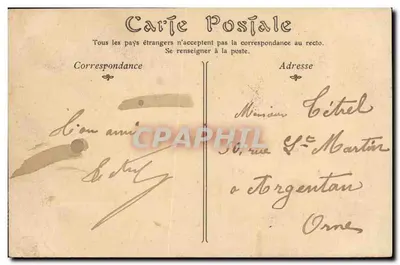 Carte Postale
Tous les pays étrangers n'acceptent pas la correspondance au recto.
Se renseigner à la poste.
Correspondance
Adresse
ami
Monsieur Titrel
30, rue St Martin
à Argentan
Orne
CPAPHIL